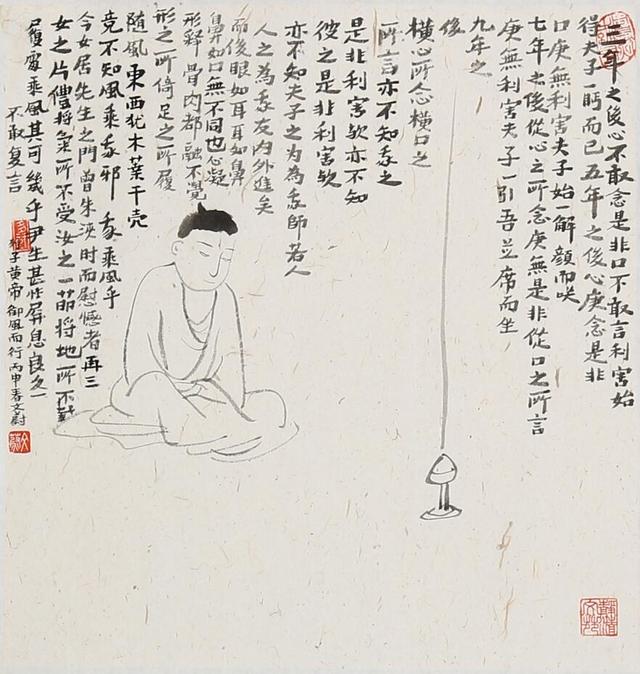 三年之後心不敢念是非口不敢言利害始
得夫子一眄而已五年之後心庚念是非
口庚無利害夫子始一解顏而咲
七年之後從心之所念庚無是非從口之所言
庚無利害夫子一引吾並席而坐
九年之
後
橫心所念橫口之
所言亦不知我之
是非利害歟亦不知
彼之是非利害歟
亦不知夫子之为為我師若人
人之為我友内外進矣
而後眼如耳耳如鼻
鼻如口無不同也心凝
形释骨肉都融不覺
形之所倚足之所履
隨風東西犹木葉干壳
竟不知風乘我邪我乘風乎
今女居先生之門曾未浹时而懟憾者再三
女之片體將氣所不受汝之一節將地所不載
履虛乘風其可幾乎尹生甚怍屏息良久一
不敢复言
列子黄帝御風而行丙申春文尉